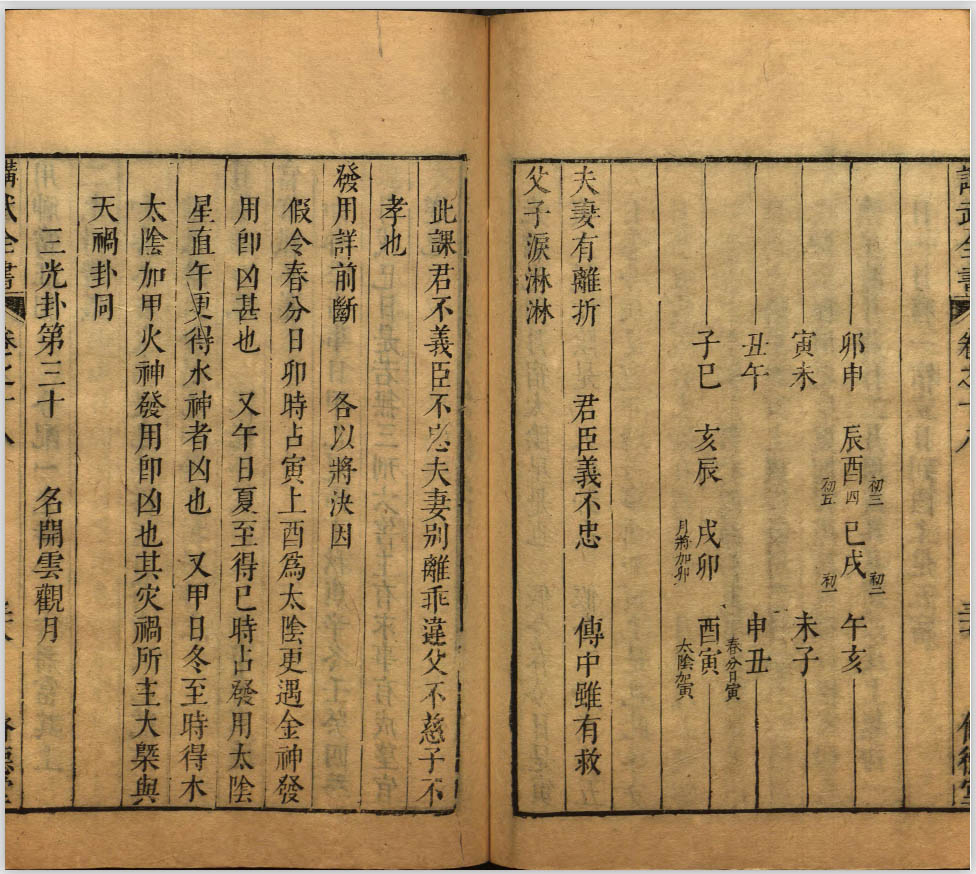 卯申 辰酉 巳戌 午亥
初三 初二
四
初五 初一
寅未 未子
丑午 申丑
春分日寅
子巳 亥辰 戌卯 酉寅
月將加卯 太陰加寅
夫妻有離折 君臣義不忠 傳中雖有救
父子淚淋淋
此課君不義臣不忠夫妻別離乖違父不慈子不
孝也
發用詳前斷 各以將決因
假令春分日卯時占寅上酉為太陰更遇金神發
用卽凶甚也 又午日夏至得巳時占發用太陰
星直午更得水神者凶也 又甲日冬至時得木
太陰加甲火神發用卽凶也其灾禍所主大槩與
天禍卦同
三光卦第三十 名開雲觀月